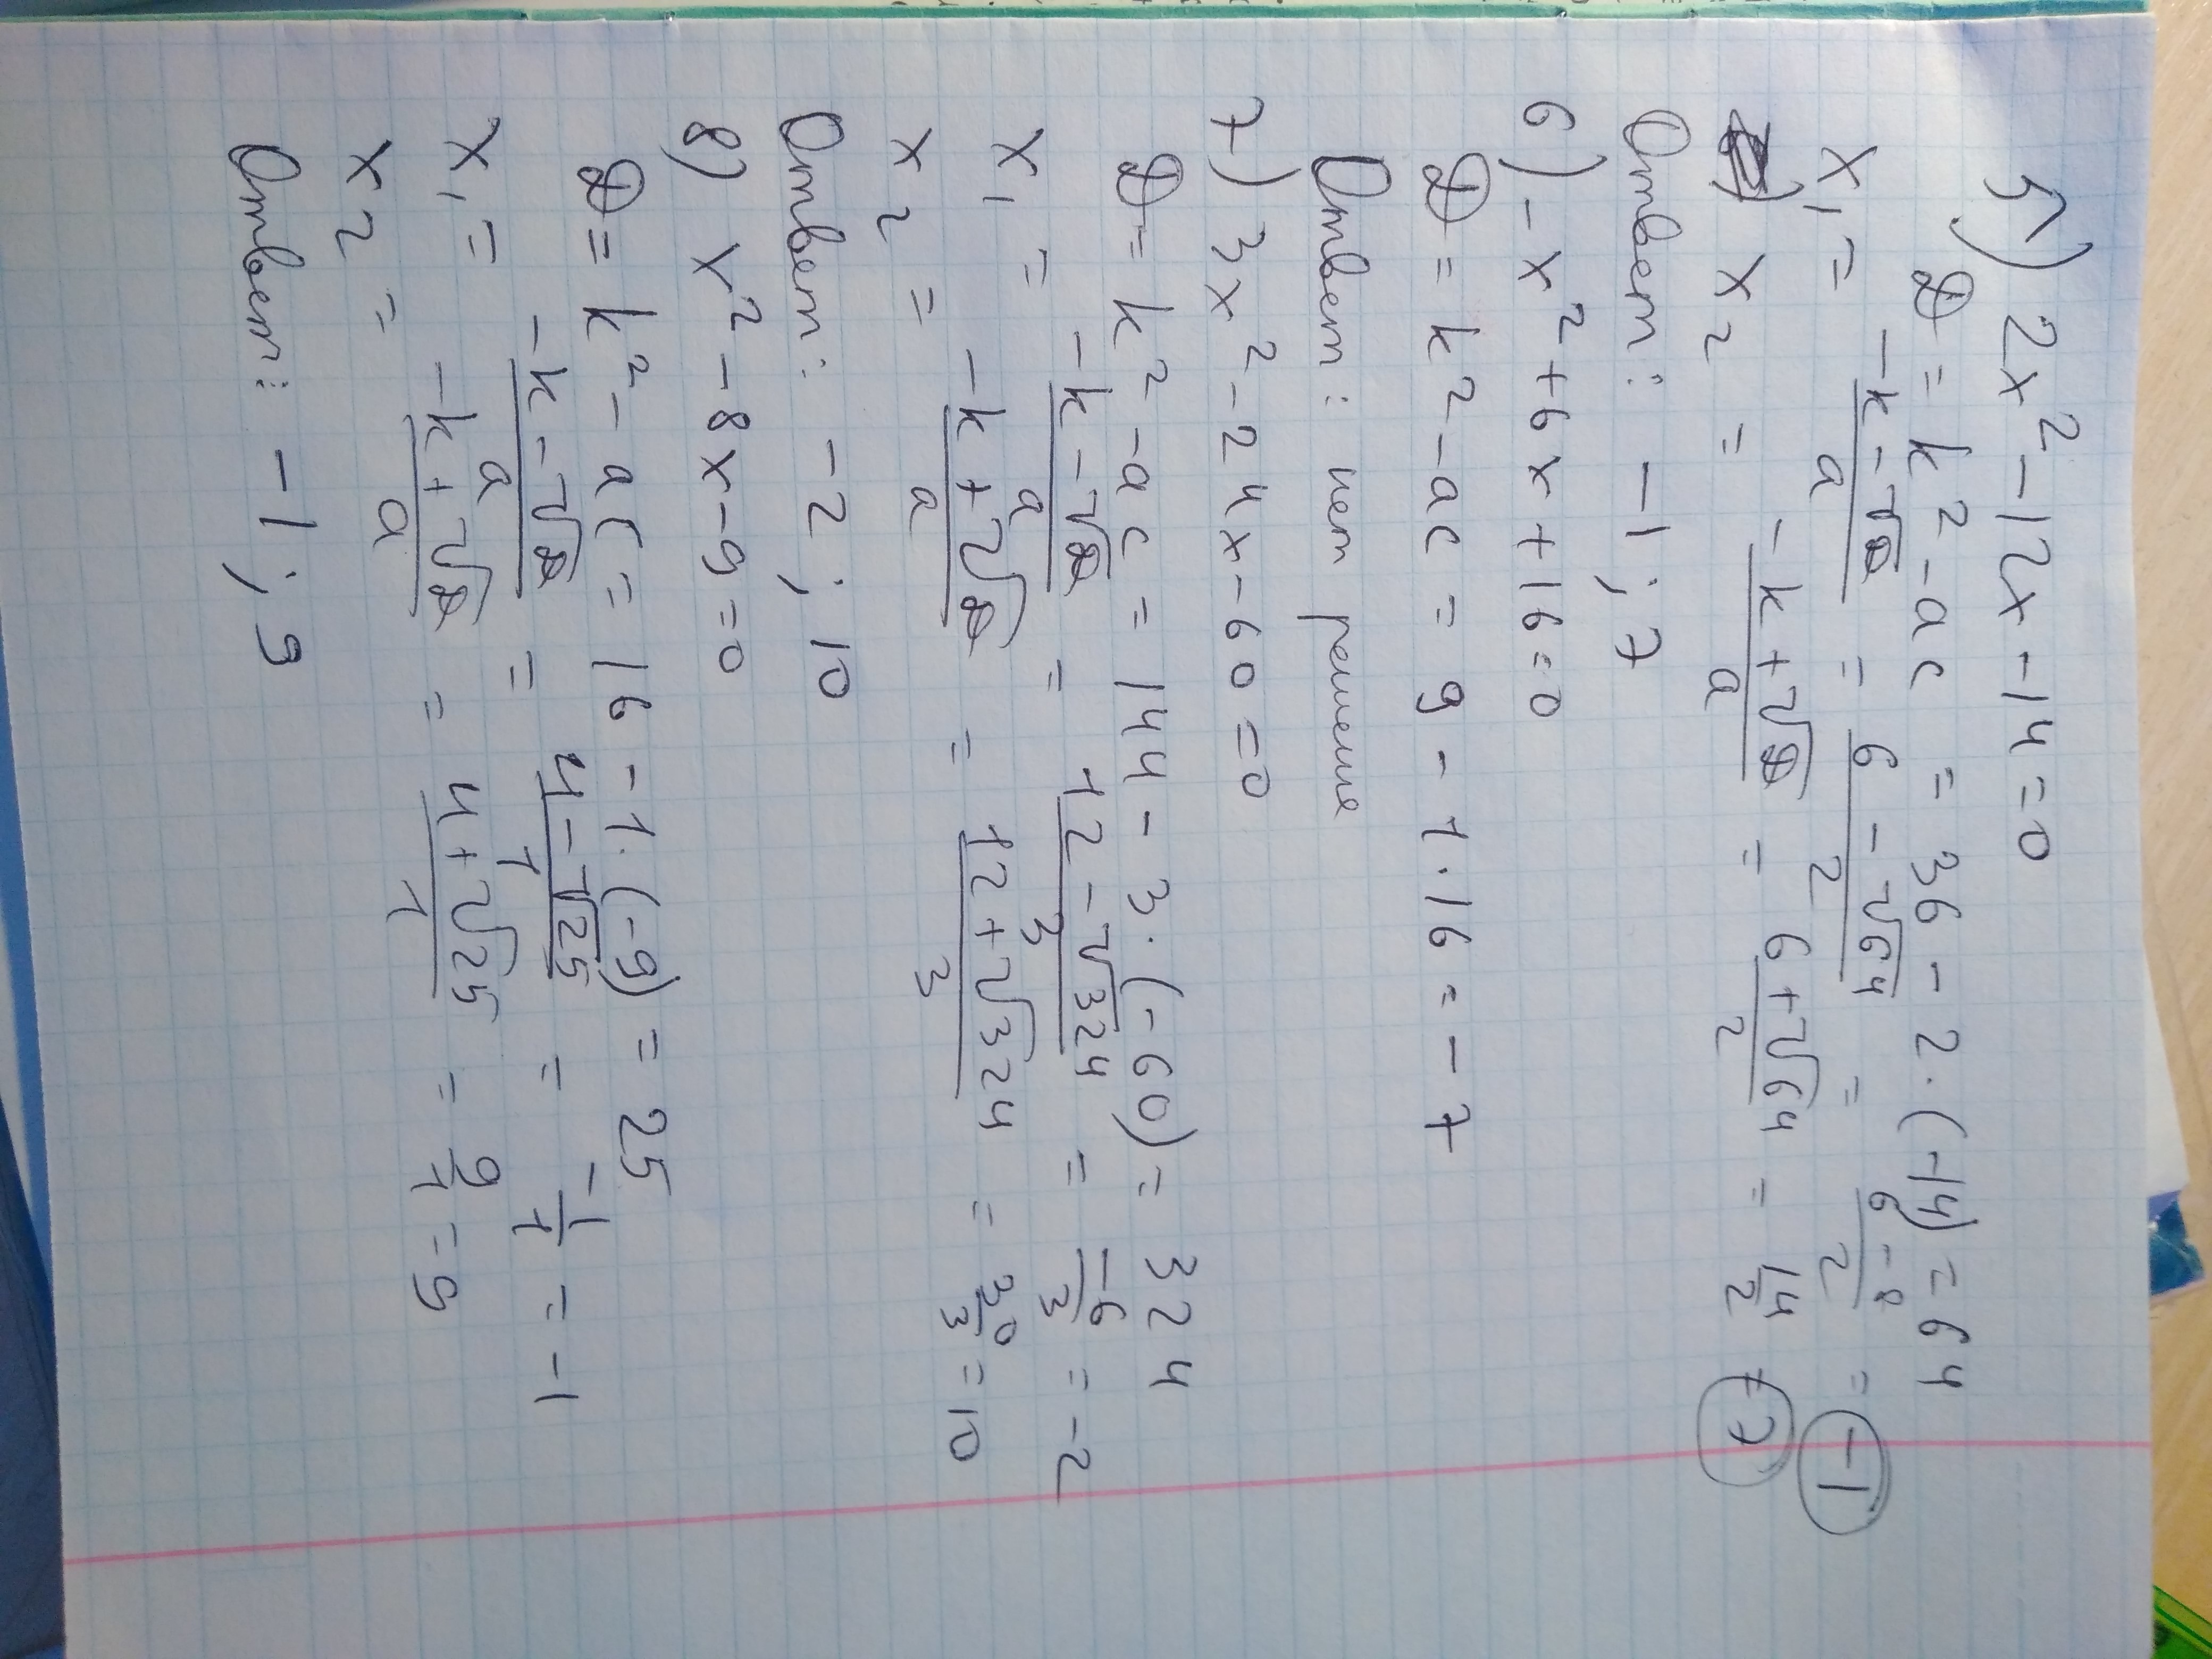 5) 2x² - 12x - 14 = 0
D = k² - ac = 36 - 2·(-14) = 64
x₁ = (-k - √D)/a = (6 - √64)/2 = (6 - 8)/2 = -1
x₂ = (-k + √D)/a = (6 + √64)/2 = 14/2 = 7
Ответ: -1; 7
6) -x² + 6x + 16 = 0
D = k² - ac = 9 - 1·16 = -7
Ответ: нет решение
7) 3x² - 24x - 60 = 0
D = k² - ac = 144 - 3·(-60) = 324
x₁ = (-k - √D)/a = (12 - √324)/3 = -6/3 = -2
x₂ = (-k + √D)/a = (12 + √324)/3 = 30/3 = 10
Ответ: -2; 10
8) x² - 8x - 9 = 0
D = k² - ac = 16 - 1·(-9) = 25
x₁ = (-k - √D)/a = (4 - √25)/1 = -1/1 = -1
x₂ = (-k + √D)/a = (4 + √25)/1 = 9/1 = 9
Ответ: -1; 9